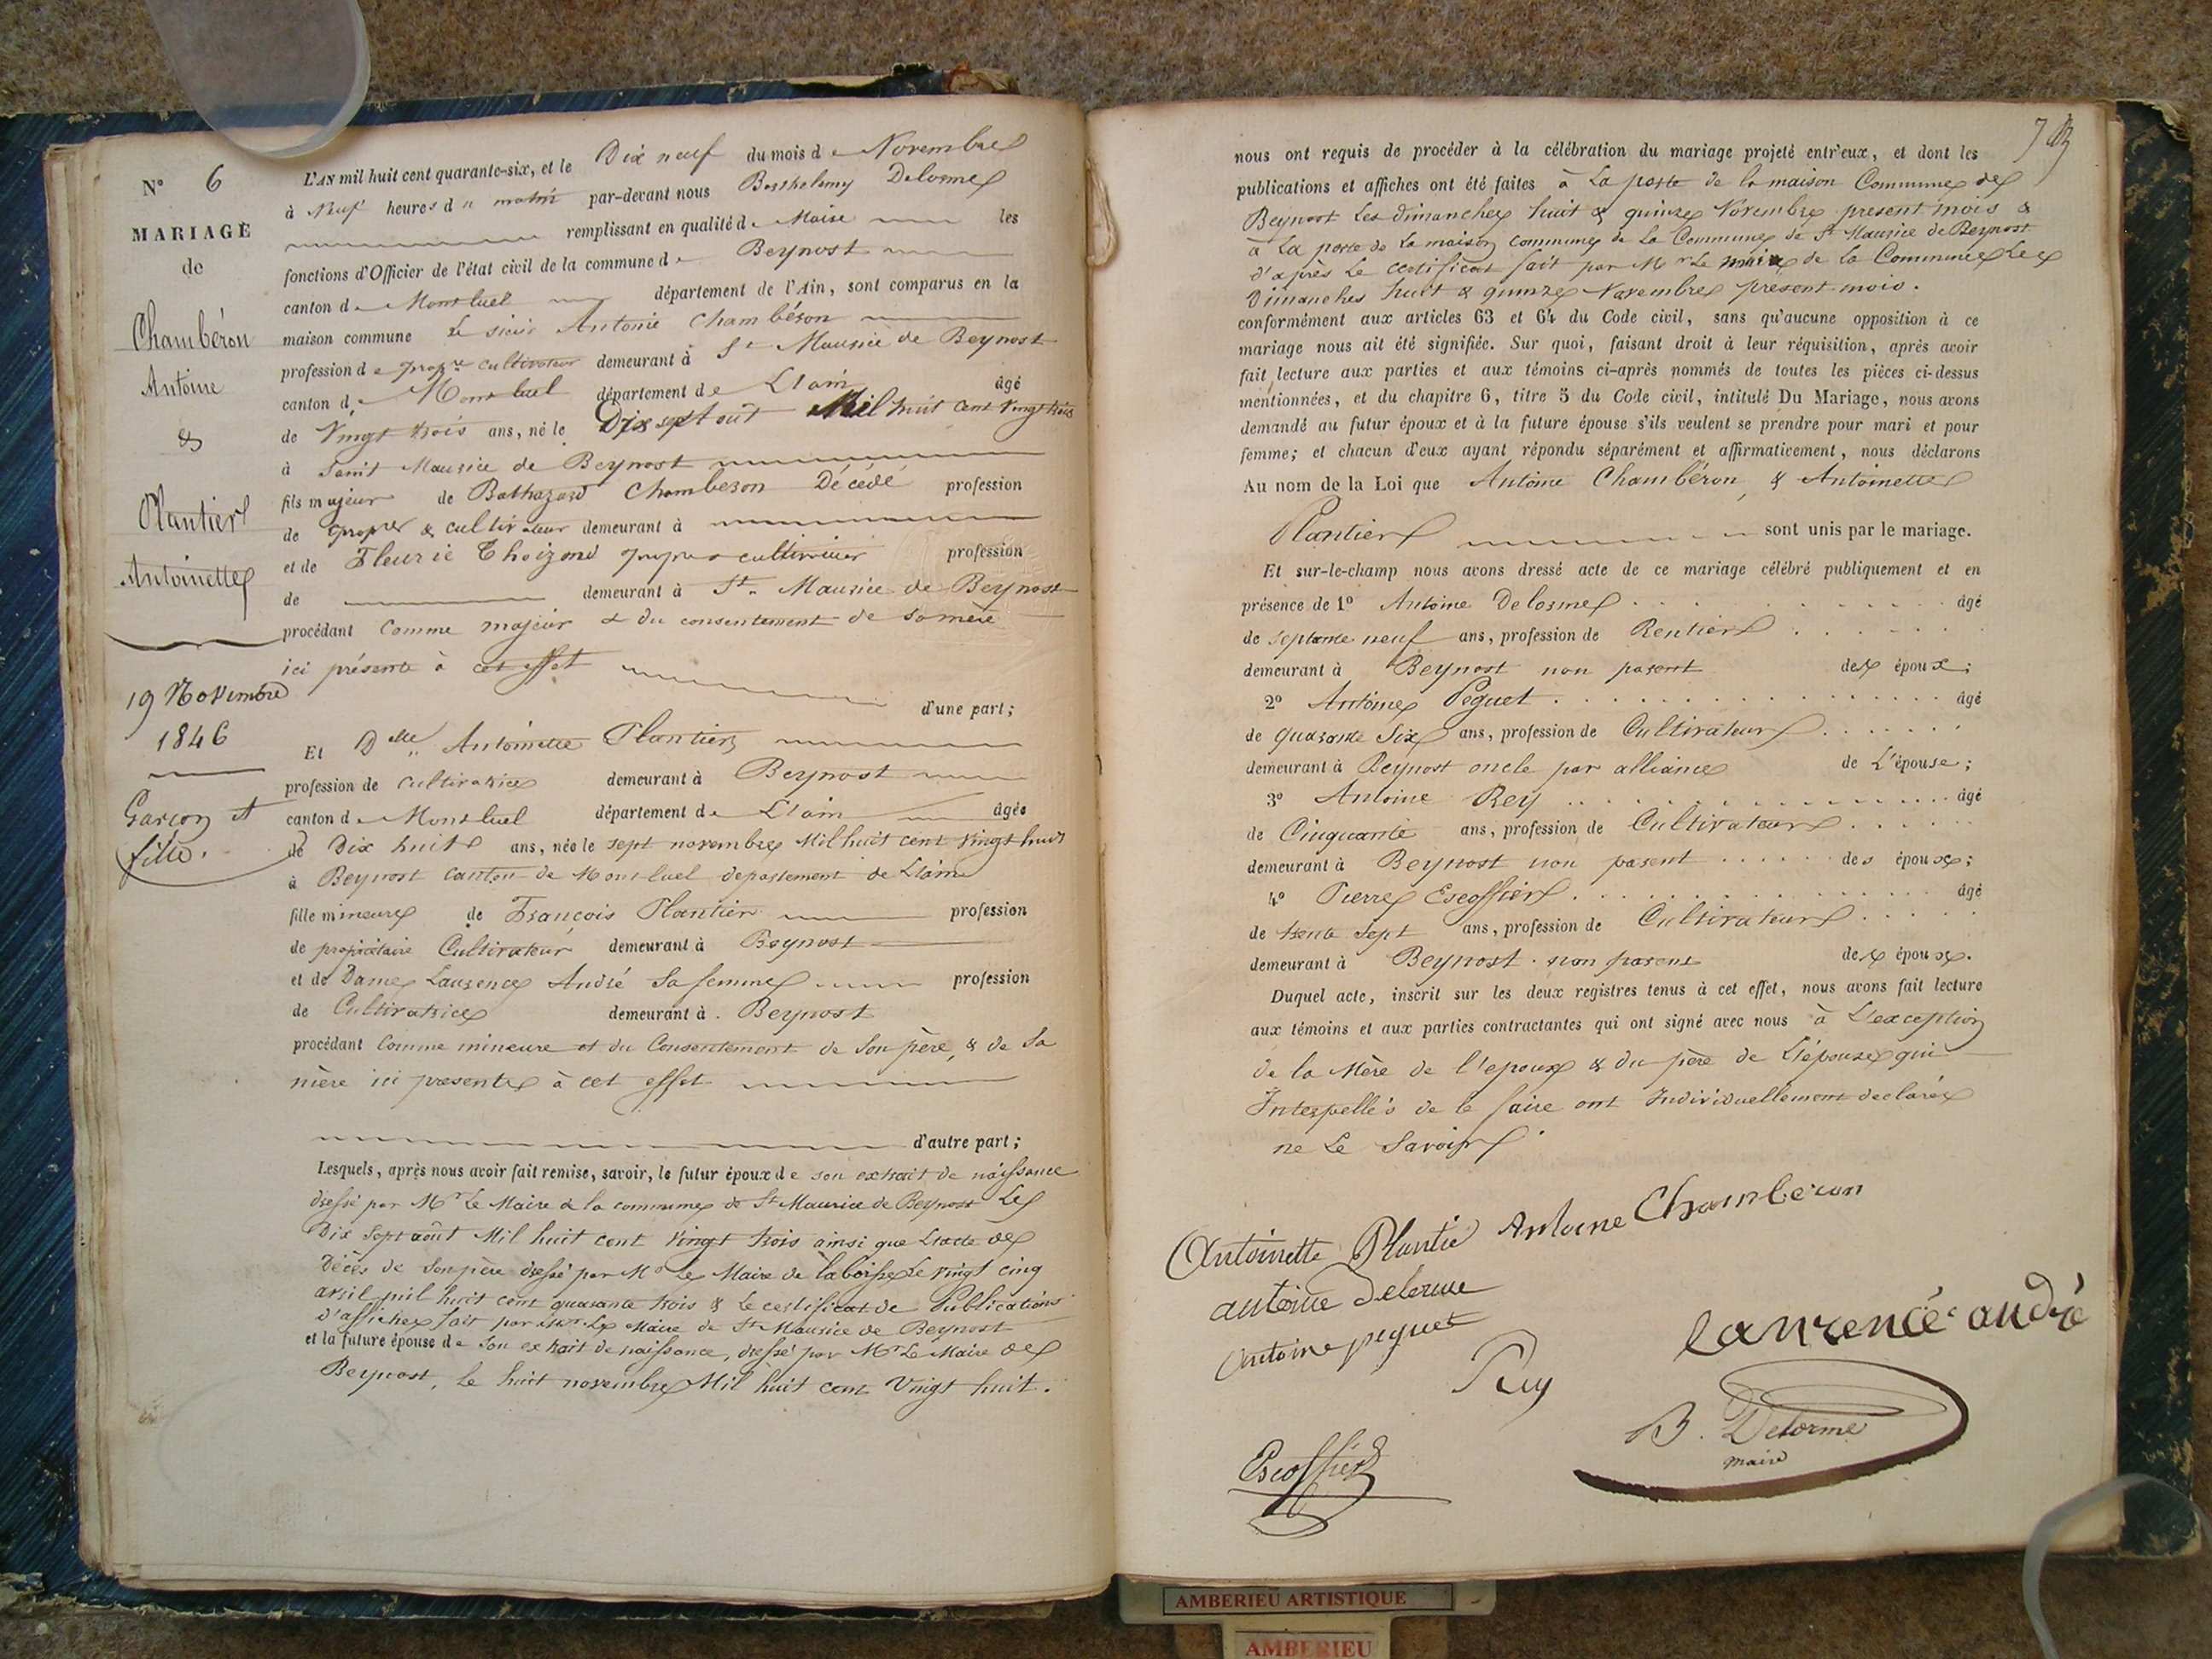 N° 6
MARIAGE
de
Chambéron
Antoine
&
Plantier
Antoinette
19 Novembre
1846
Garçon et
fille.
L'AN mil huit cent quarante-six, et le Dix neuf du mois de Novembre
à Neuf heures du matin par-devant nous Barthelemy Delorme
remplissant en qualité de Maire les
fonctions d'Officier de l'état civil de la commune de Beynost
canton de Montluel département de l'Ain, sont comparus en la
maison commune Le sieur Antoine Chambéron
profession de propre cultivateur demeurant à St Maurice de Beynost
canton de Montluel département de L'ain âgé
de Vingt trois ans, né le Dix sept août Mil huit cent Vingt trois
à Saint Maurice de Beynost
fils majeur de Balthazard Chamberon Décédé profession
de propre & cultivateur demeurant à
et de Fleurie Thoizond profession
de demeurant à St Maurice de Beynost
procédant Comme majeur & du consentement de sa mère
ici présente à cet effet
d'une part;
Et Delle Antoinette Plantier
profession de Cultivatrice demeurant à Beynost
canton de Montluel département de L'ain âgée
de Dix huit ans, née le sept novembre Mil huit cent Vingt huit
à Beynost Canton de Montluel departement de L'ain
fille mineure de François Plantier profession
de propriétaire Cultivateur demeurant à Beynost
et de Dame Laurence André Sa femme profession
de Cultivatrice demeurant à Beynost
procédant Comme mineure et du Consentement de Son père, & de Sa
mère ici presente à cet effet
d'autre part;
Lesquels, après nous avoir fait remise, savoir, le futur époux de son extrait de naissance
dressé par Mr Le Maire de la commune de St Maurice de Beynost Le
Dix Sept août Mil huit cent Vingt trois ainsi que L'acte de
Décès de Son père dressé par Mr Le Maire de laboisse Le vingt cinq
avril mil huit cent quarante trois & Le certificat de Publications
d'affiches fait par Mr Le Maire de St Maurice de Beynost
et la future épouse de Son extrait de naissance, dressé par Mr Le Maire de
Beynost, le huit novembre Mil huit cent Vingt huit.
nous ont requis de procéder à la célébration du mariage projeté entr'eux, et dont les
publications et affiches ont été faites à La porte de la maison Commune de
Beynost Les dimanches huit & quinze Novembre present mois &
à La porte de La maison commune de La Commune de St Maurice de Beynost
d'après Le certificat fait par Mr Le maire de La Commune Les
Dimanches huit & quinze Novembre present mois.
conformément aux articles 63 et 64 du Code civil, sans qu'aucune opposition à ce
mariage nous ait été signifiée. Sur quoi, faisant droit à leur réquisition, après avoir
fait lecture aux parties et aux témoins ci-après nommés de toutes les pièces ci-dessus
mentionnées, et du chapitre 6, titre 5 du Code civil, intitulé Du Mariage, nous avons
demandé au futur époux et à la future épouse s'ils veulent se prendre pour mari et pour
femme; et chacun d'eux ayant répondu séparément et affirmativement, nous déclarons
Au nom de la Loi que Antoine Chambéron, & Antoinette
Plantier sont unis par le mariage.
Et sur-le-champ nous avons dressé acte de ce mariage célébré publiquement et en
présence de 1° Antoine Delorme âgé
de septante neuf ans, profession de Rentier
demeurant à Beynost non parent des époux;
2° Antoine Peguet âgé
de quarante Six ans, profession de Cultivateur
demeurant à Beynost oncle par alliance de L'épouse;
3° Antoine Rey âgé
de Cinquante ans, profession de Cultivateur
demeurant à Beynost non parent des époux;
4° Pierre Escoffier âgé
de trente Sept ans, profession de Cultivateur
demeurant à Beynost non parent des époux.
Duquel acte, inscrit sur les deux registres tenus à cet effet, nous avons fait lecture
aux témoins et aux parties contractantes qui ont signé avec nous à L'exception
de la Mère de l'epoux & du père de L'épouse qui
Interpellés de le faire ont Individuellement declaré
ne Le Savoir.
Antoinette Plantié Antoine Chamberon
antoine Delorme
Laurence andré
Antoine peguet
Rey
B. Delorme
maire
Escoffier
AMBERIEU ARTISTIQUE
AMBERIEU